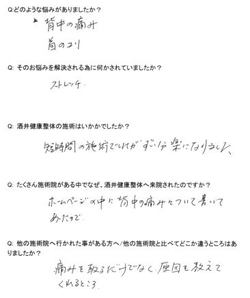 Q:どのような悩みがありましたか?
背中の痛み
肩のコリ
Q: そのお悩みを解決される為に何かされていましたか?
ストレッチ
Q: 酒井健康整体の施術はいかがでしたか?
短時間の施術でしたがずい分楽になりました。
Q: たくさん施術院がある中でなぜ、酒井健康整体へ来院されたのですか?
ホームページの中に背中の痛みについて書いて
あったので
Q: 他の施術院へ行かれた事がある方へ/他の施術院と比べてどこか違うところはありましたか?
痛みを取るだけでなく原因を教えて
くれるところ